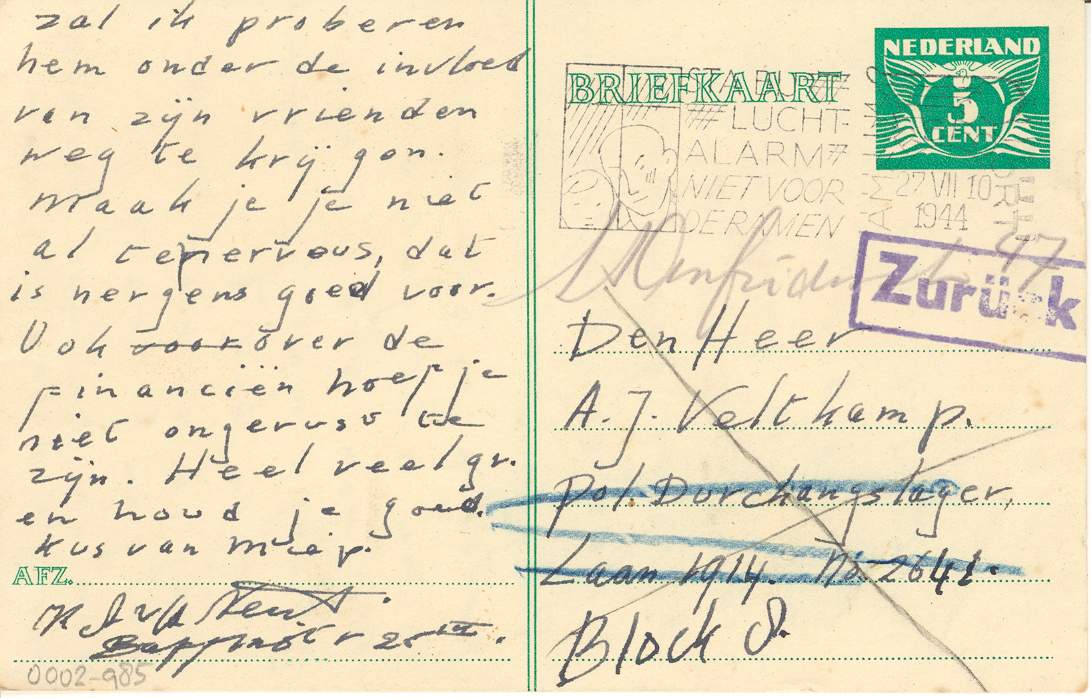 zal ik proberen
hem onder de invloed
van zijn vrienden
weg te krijgen.
Maak je je niet
al te nerveus, dat
is nergens goed voor.
Ook voor over de
financiën hoef je
niet ongerust te
zijn. Heel veel gr.
en houd je goed.
Kus van Miep.
AFZ.
25 III.
0002-985
BRIEFKAART
NEDERLAND
5
CENT
LUCHT-
ALARM
NIET VOOR
DE RAMEN
27 VII 10
1944
47
Zurück
Den Heer
A. J. Veltkamp.
Pol. Durchangslager,
Laan 1914. No. 2641.
Block 8.